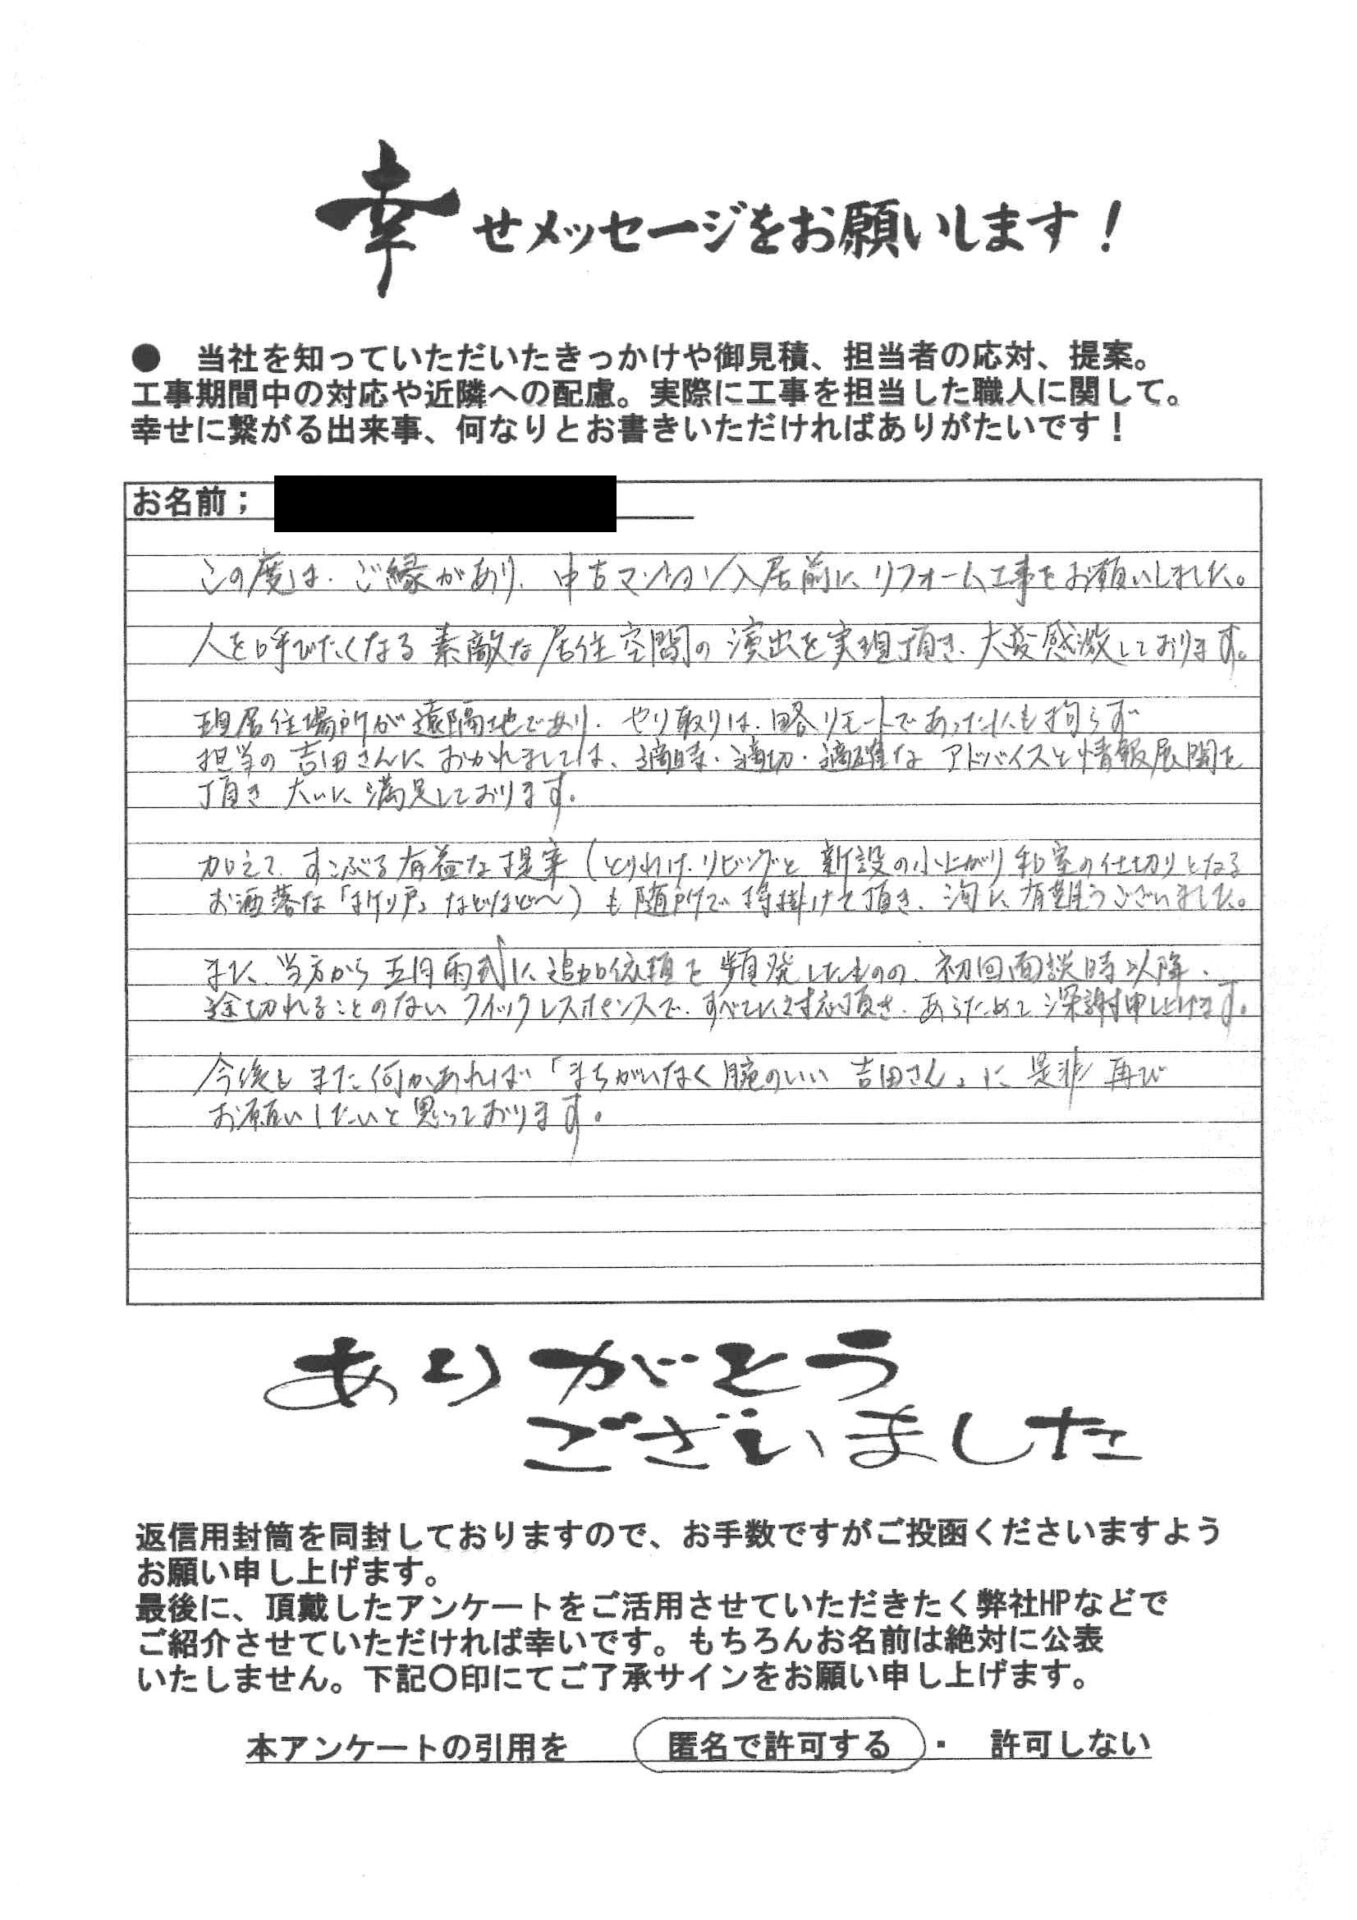 幸せメッセージをお願いします！
●　当社を知っていただいたきっかけや御見積、担当者の応対、提案。
工事期間中の対応や近隣への配慮。実際に工事を担当した職人に関して。
幸せに繋がる出来事、何なりとお書きいただければありがたいです！
お名前；
この度は、ご縁があり、中古マンション入居前にリフォーム工事をお願いしました。
人を呼びたくなる素敵な居住空間の演出を実現頂き、大変感激しております。
現居住場所が遠隔地であり、やり取りは、略リモートであったにも拘らず
担当の吉田さんにおかれましては、適時・適切・適確なアドバイスと情報展開を
頂き大いに満足しております。
加えて、すこぶる有益な提案（とりわけ、リビングと新設の小上がり和室の仕切りとなる
お洒落な「まけり戸」などなど〜）も随所で持掛けて頂き、洵に有難うございました。
また、当方から五月雨式に追加依頼を頻発したものの、初回面談時以降、
途切れることのないクイックレスポンスで、すべてに対応頂き、あらためて深謝申し上げます。
今後もまた何かあれば「まちがいなく腕のいい吉田さん」に是非再び
お願いしたいと思っております。
ありがとう
ございました
返信用封筒を同封しておりますので、お手数ですがご投函くださいますよう
お願い申し上げます。
最後に、頂戴したアンケートをご活用させていただきたく弊社HPなどで
ご紹介させていただければ幸いです。もちろんお名前は絶対に公表
いたしません。下記〇印にてご了承サインをお願い申し上げます。
本アンケートの引用を　匿名で許可する・　許可しない